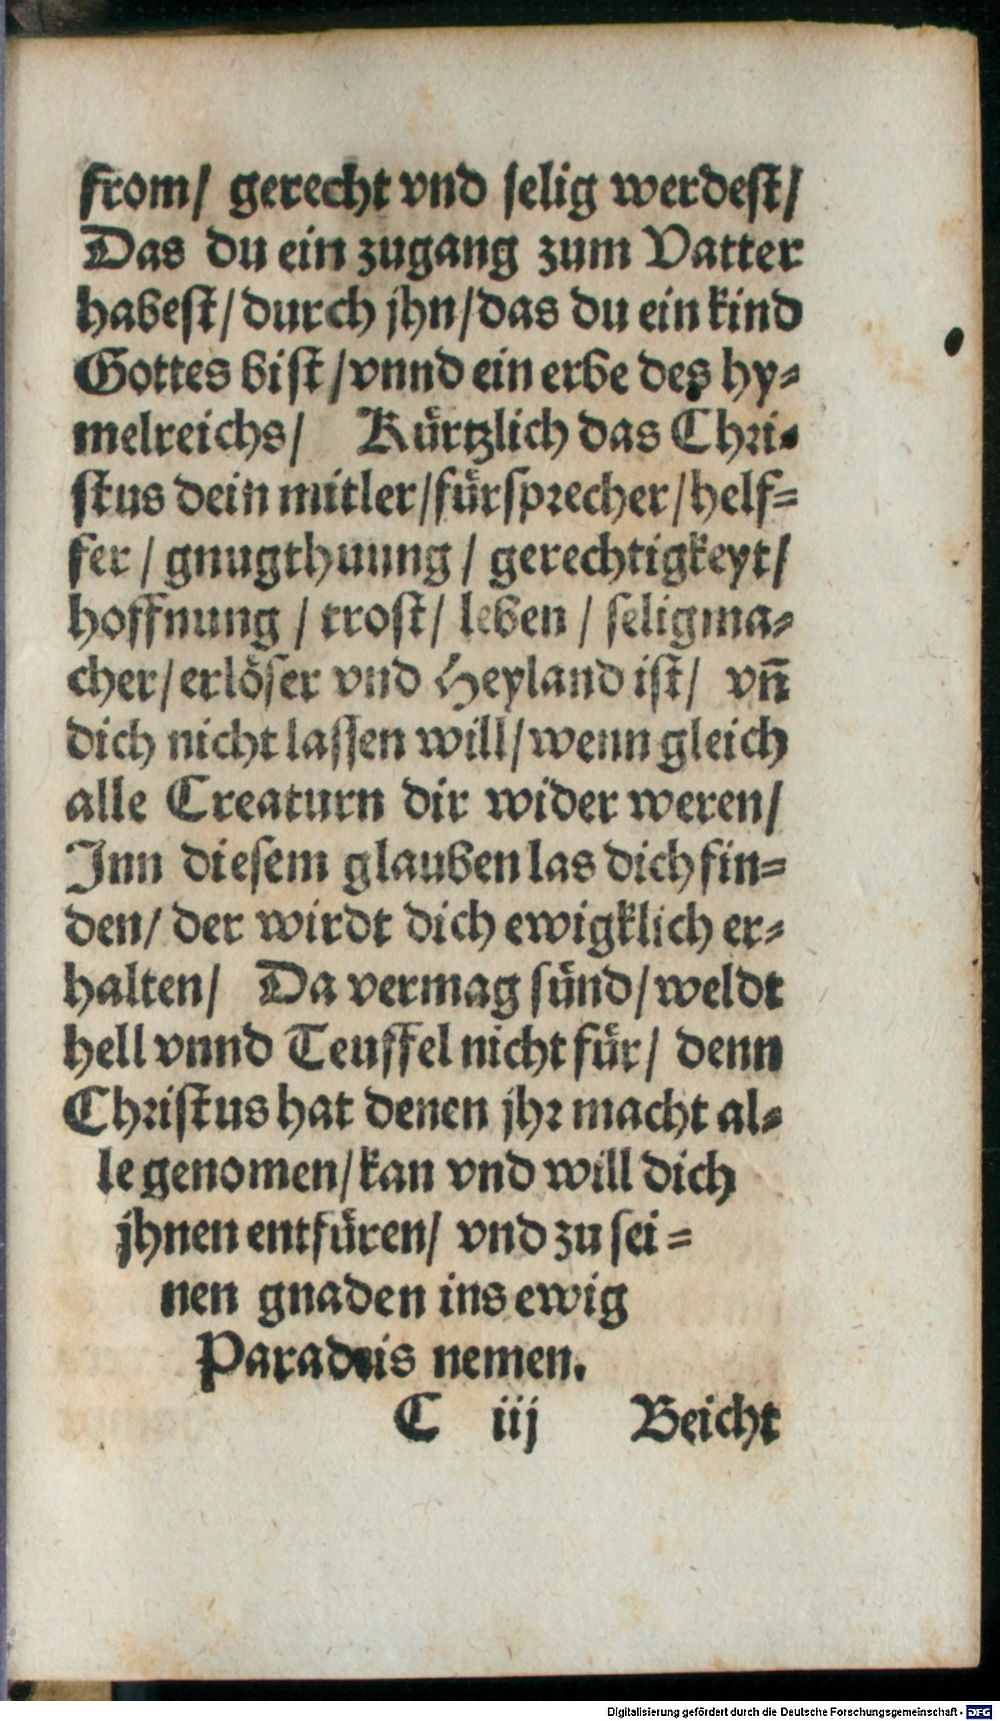 from/ gerecht vnd selig werdest/
Das du ein zugang zum Vatter
habest/ durch jhn/ das du ein kind
Gottes bist/ vnnd ein erbe des hy-
melreichs/ Kürtzlich das Chri-
stus dein mitler/ fürsprecher/ helf-
fer/ gnugthuung/ gerechtigkeyt/
hoffnung/ trost/ leben/ seligma-
cher/ erlöser vnd Heyland ist/ vñ
dich nicht lassen will/ wenn gleich
alle Creaturn dir wider weren/
Inn diesem glauben las dich fin-
den/ der wirdt dich ewigklich er-
halten/ Da vermag sünd/ weldt
hell vnnd Teuffel nicht für/ denn
Christus hat denen jhr macht al-
le genomen/ kan vnd will dich
jhnen entfüren/ vnd zu sei-
nen gnaden ins ewig
Paradeis nemen.
C iij Beicht
Digitalisierung gefördert durch die Deutsche Forschungsgemeinschaft - DFG